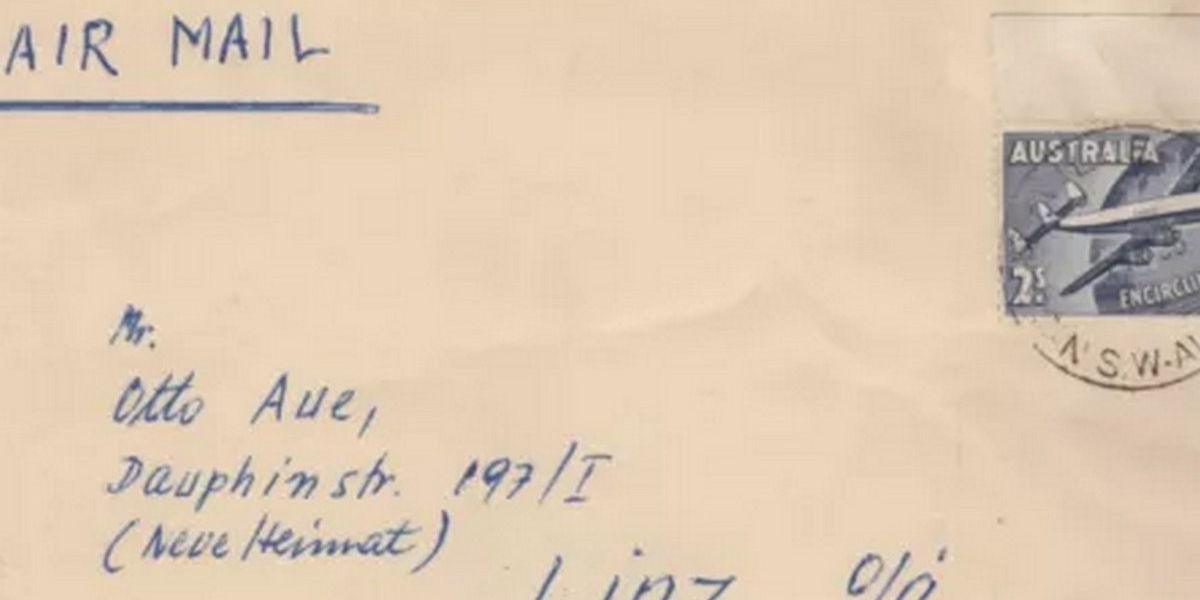 AIR MAIL
AUSTRALIA
2s
ENCIRCLI
N.S.W-AU
Mr.
Otto Aue,
Dauphinstr. 197/I
(Neue Heimat)
Linz O/Ö